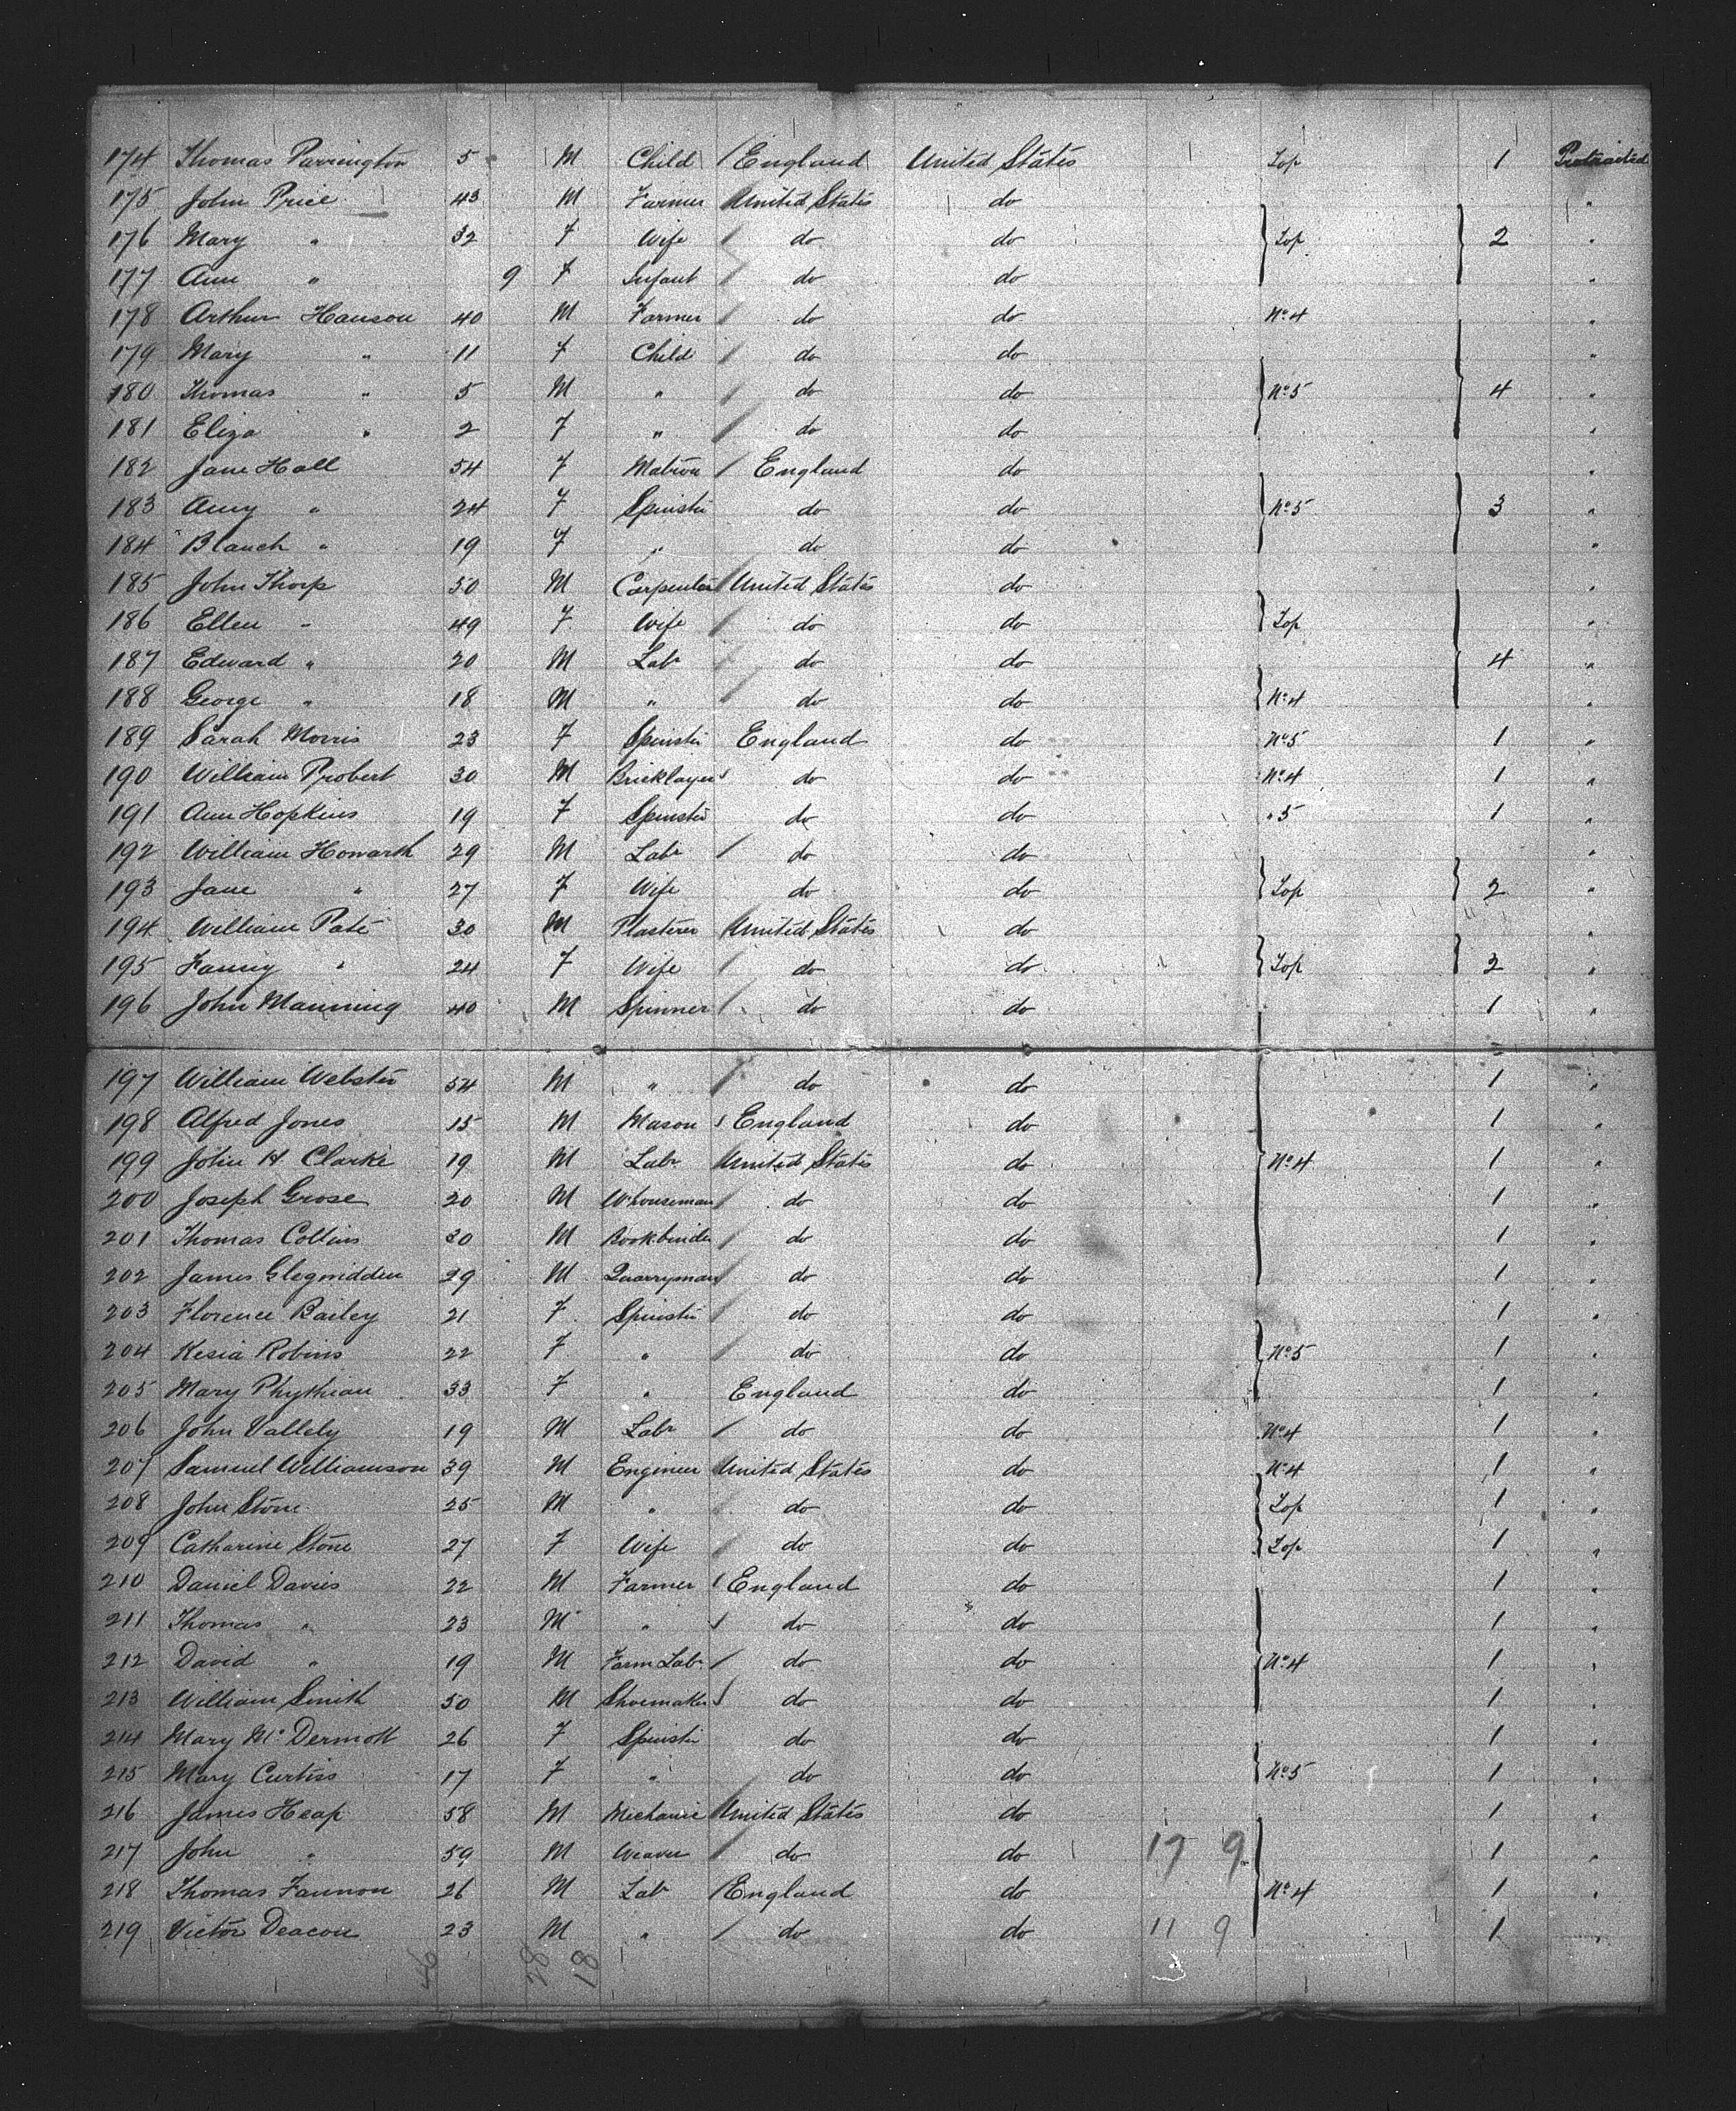 174 Thomas Parrington 5 M Child England United States Top 1 Protracted
175 John Price 43 M Farmer United States do "
176 Mary " 32 F Wife do do Top 2 "
177 Ann " 9 F Infant do do "
178 Arthur Hanson 40 M Farmer do do No 4 "
179 Mary " 11 F Child do do "
180 Thomas " 5 M " do do No 5 4 "
181 Eliza " 2 F " do do "
182 Jane Hall 54 F Matron England do "
183 Amy " 24 F Spinster do do No 5 3 "
184 Blanch " 19 F " do do "
185 John Thorp 50 M Carpenter United States do "
186 Ellen " 49 F Wife do do Top "
187 Edward " 20 M Labr do do 4 "
188 George " 18 M " do do No 4 "
189 Sarah Morris 23 F Spinster England do No 5 1 "
190 William Probert 30 M Bricklayer do do No 4 1 "
191 Ann Hopkins 19 F Spinster do do " 5 1 "
192 William Howarth 29 M Labr do do "
193 Jane " 27 F Wife do do Top 2 "
194 William Pate 30 M Plasterer United States do "
195 Fanny " 24 F Wife do do Top 2 "
196 John Manning 40 M Spinner do do 1 "
197 William Webster 54 M " do do 1 "
198 Alfred Jones 15 M Mason England do 1 "
199 John H. Clarke 19 M Labr United States do No 4 1 "
200 Joseph Grose 20 M Whouseman do do 1 "
201 Thomas Collins 30 M Bookbinder do do 1 "
202 James 29 M Quarryman do do 1 "
203 Florence Bailey 21 F Spinster do do 1 "
204 Kesia Robins 22 F " do do No 5 1 "
205 Mary Phythian 33 F " England do 1 "
206 John Vallely 19 M Labr do do No 4 1 "
207 Samuel Williamson 39 M Engineer United States do No 4 1 "
208 John Stone 25 M " do do Top 1 "
209 Catharine Stone 27 F Wife do do Top 1 "
210 Daniel Davies 22 M Farmer England do 1 "
211 Thomas " 23 M " do do 1 "
212 David " 19 M Farm Labr do do No 4 1 "
213 William Smith 50 M Shoemaker do do 1 "
214 Mary Mc Dermott 26 F Spinster do do 1 "
215 Mary Curtiss 17 F " do do No 5 1 "
216 James Heap 58 M Mechanic United States do 1 "
217 John " 59 M Weaver do do 17 9 1 "
218 Thomas Fannon 26 M Lab England do No 4 1 "
219 Victor Deacon 23 M " do do 11 9 1 "
46 28 18